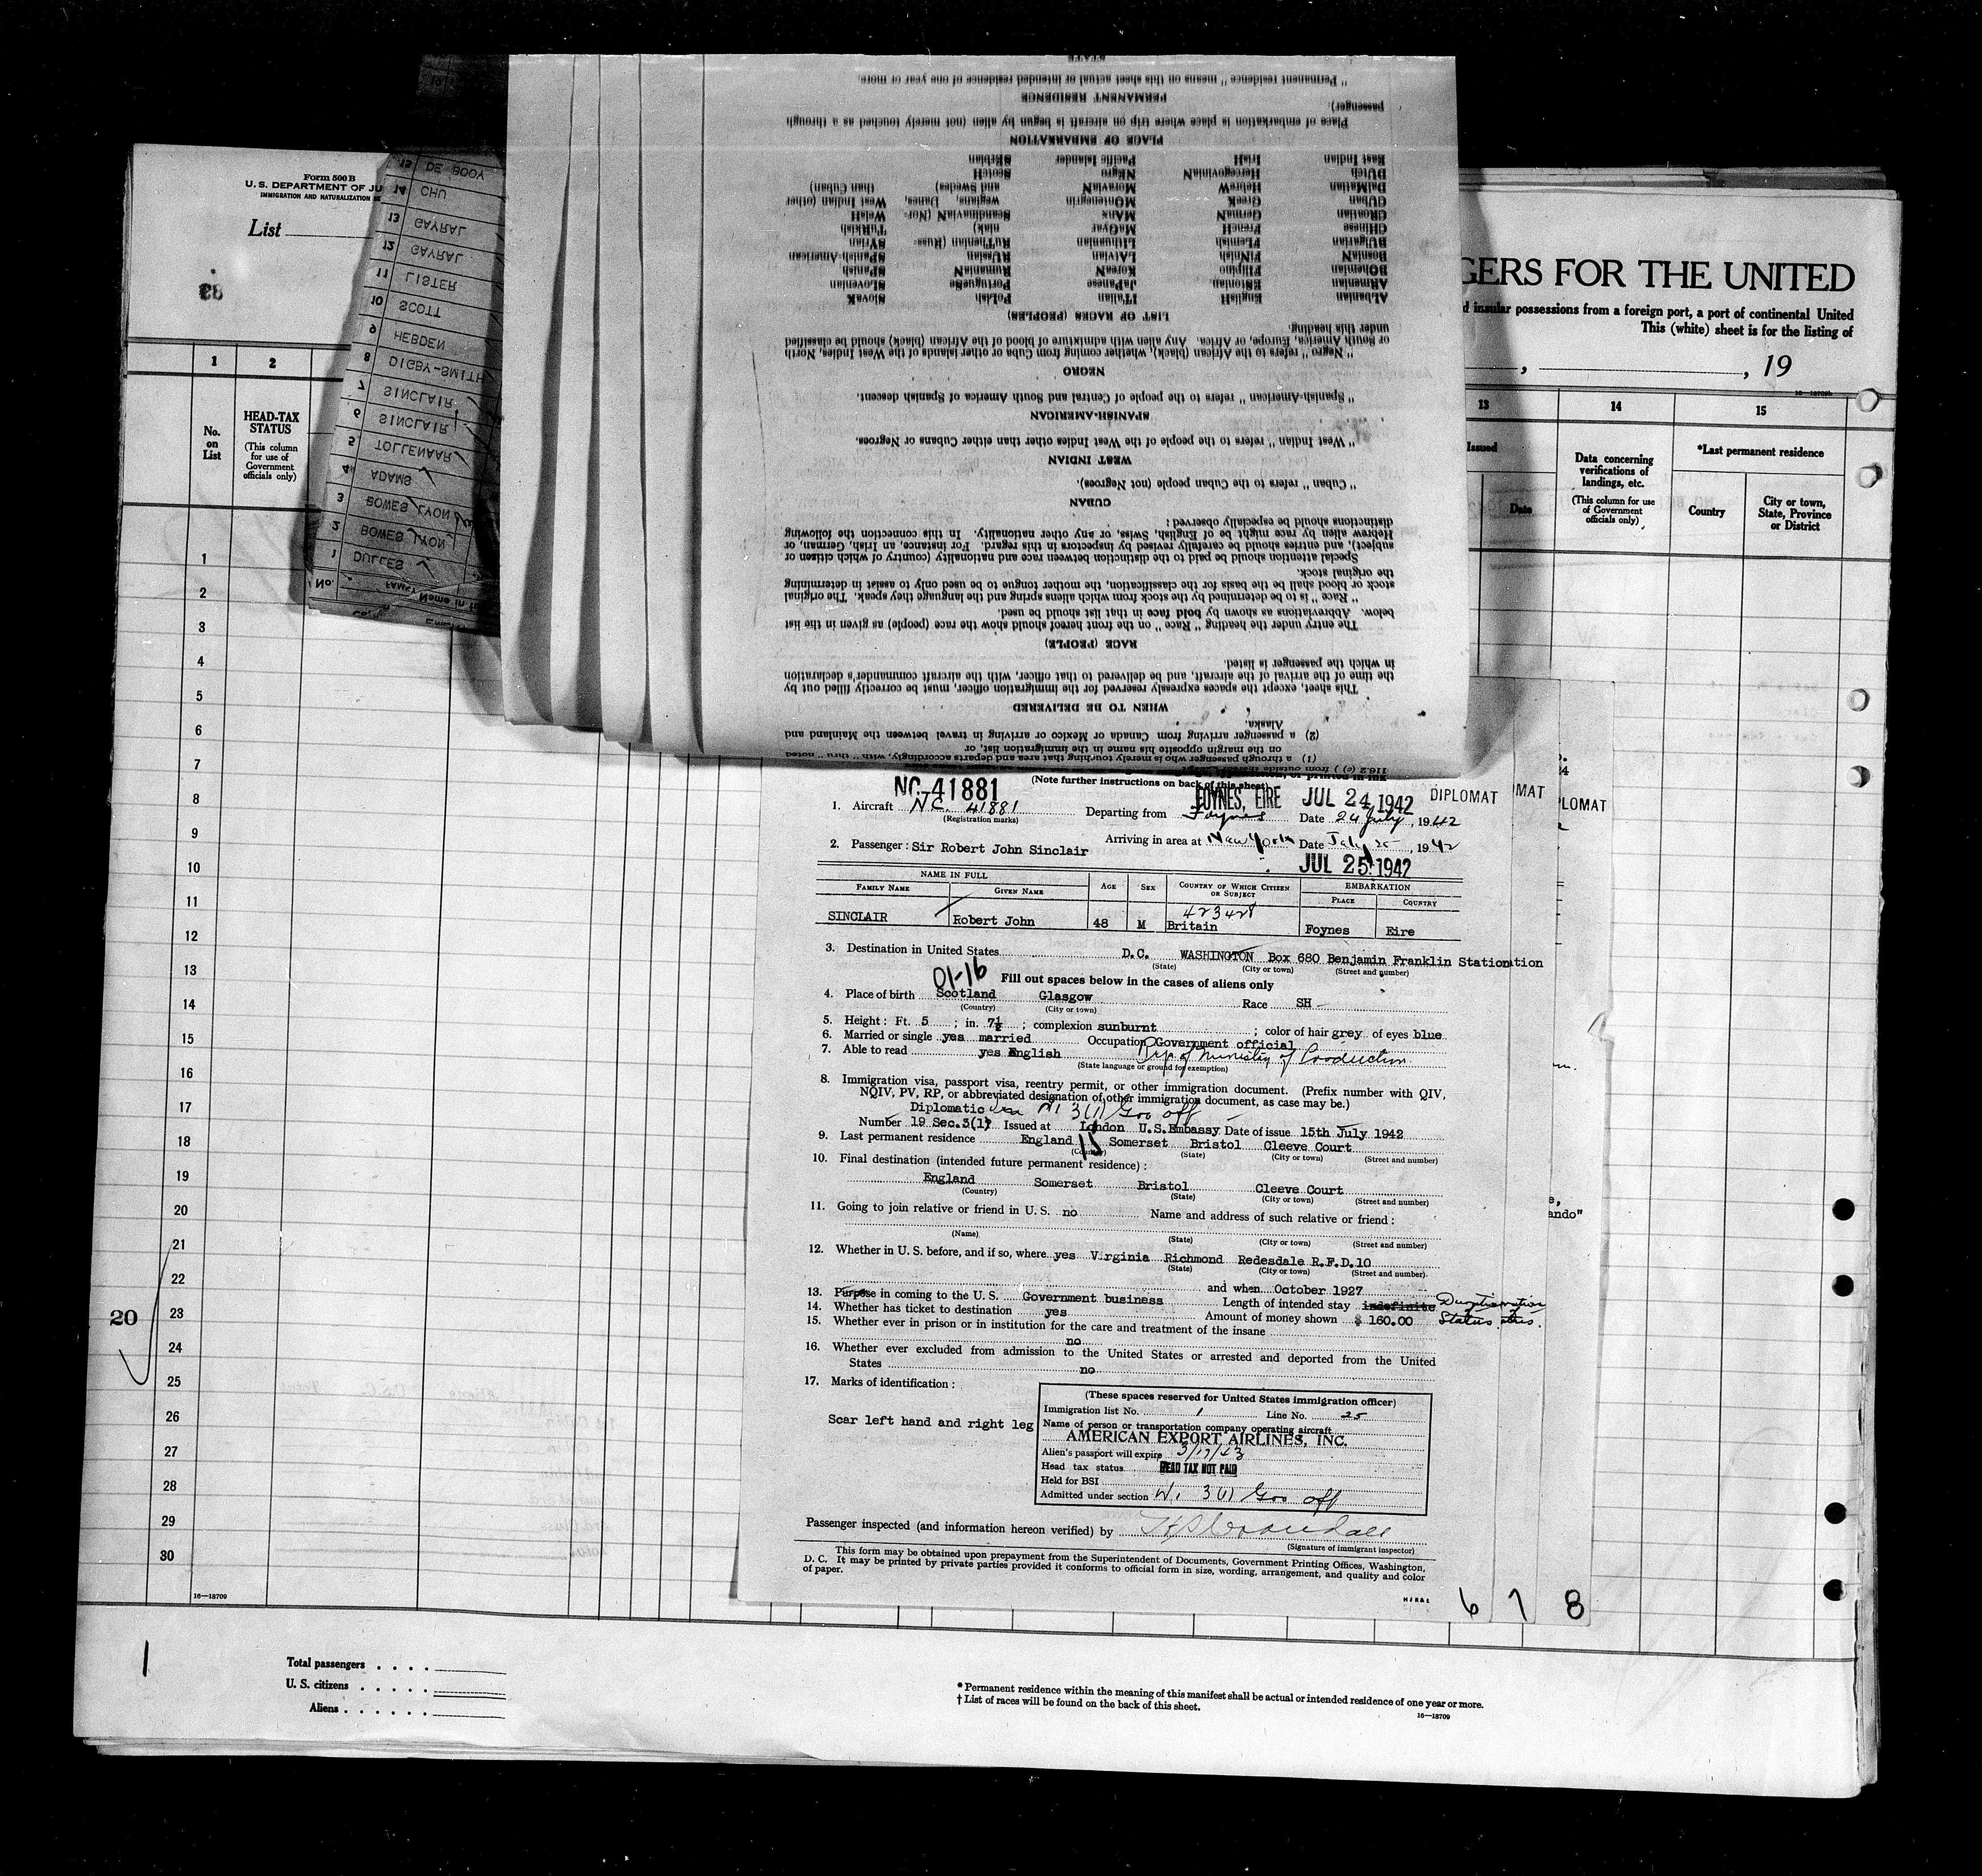 Form 500 B
U. S. DEPARTMENT OF JU
IMMIGRATION AND NATURALIZATION SE
List
83
1 2
No. on List
HEAD-TAX STATUS
(This column for use of Government officials only)
15 DE BOOY
14 CHU
13 GAYRAL
12 GAYRAL
11 LISTER
10 SCOTT
9 HEBDEN
8 DIGBY-SMITH
7 SINCLAIR
6 SINCLAIR
5 TOLLENAAR
4 ADAMS
3 BOWES LYON
2 BOWES LYON
1 DULLES
No. FAMILY Name in
GERS FOR THE UNITED
d insular possessions from a foreign port, a port of continental United
This (white) sheet is for the listing of
, , 19
13 14 15
Issued
Date
Data concerning verifications of landings, etc.
(This column for use of Government officials only)
*Last permanent residence
Country
City or town, State, Province or District
116.2 (c) ) from outside
(1) a through passenger who is merely touching that area and departs accordingly, with "thru" noted
on the margin opposite his name in the immigration list, or
(2) a passenger arriving from Canada or Mexico or arriving in travel between the Mainland and
Alaska.
WHEN TO BE DELIVERED
This sheet, except the spaces expressly reserved for the immigration officer, must be correctly filled out by
the time of the arrival of the aircraft, and be delivered to that officer, with the aircraft commander's declaration
in which the passenger is listed.
RACE (PEOPLE)
The entry under the heading "Race" on the front hereof should show the race (people) as given in the list
below. Abbreviations as shown by bold face in that list should be used.
"Race" is to be determined by the stock from which aliens spring and the language they speak. The original
stock or blood shall be the basis for the classification, the mother tongue to be used only to assist in determining
the original stock.
Special attention should be paid to the distinction between race and nationality (country of which citizen or
subject), and entries should be carefully revised by inspectors in this regard. For instance, an Irish, German, or
Hebrew alien by race might be of English, Swiss, or any other nationality. In this connection the following
distinctions should be especially observed:
CUBAN
"Cuban" refers to the Cuban people (not Negroes).
WEST INDIAN
"West Indian" refers to the people of the West Indies other than either Cubans or Negroes.
SPANISH-AMERICAN
"Spanish-American" refers to the people of Central and South America of Spanish descent.
NEGRO
"Negro" refers to the African (black), whether coming from Cuba or other islands of the West Indies, North
or South America, Europe, or Africa. Any alien with admixture of blood of the African (black) should be classified
under this heading.
LIST OF RACES (PEOPLES)
ALbanian EngliSH ITalian PoLish SlovaK
ARmenian EStonian JaPanese PortugueSe SLovenian
BOhemian FIlipino KoreaN RumaniaN SPanish
BosniaN FiNnish LATvian RUssian SPANish-American
BUlgarian FLemish LIthuanian RuThenian (Russniak) SYrian
CHinese FrencH MaGyar TuRkish
CRoatian GermaN MAnx ScandinaviaN (Norwegians, Danes, and Swedes) WelsH
CUban GreeK MOntenegrin West Indian (other than Cuban)
DalMatian HebreW MoraviaN
DUtch HercegoviniaN NEgro ScotcH
East Indian IrisH Pacific Islander SErbian
PLACE OF EMBARKATION
Place of embarkation is place where trip on aircraft is begun by alien (not merely touched as a through
passenger).
PERMANENT RESIDENCE
"Permanent residence" means on this sheet actual or intended residence of one year or more.
(Note further instructions on back of this sheet)
NC-41881
FOYNES, EIRE JUL 24, 1942 DIPLOMAT MAT LOMAT
1. Aircraft N.C. 41881 Departing from Foynes Date 24 July, 1942
(Registration marks)
Arriving in area at New York Date July 25, 1942
2. Passenger: Sir Robert John Sinclair
JUL 25 1942
NAME IN FULL
FAMILY NAME GIVEN NAME AGE SEX COUNTRY OF WHICH CITIZEN OR SUBJECT EMBARKATION
PLACE COUNTRY
423428
SINCLAIR Robert John 48 M Britain Foynes Eire
3. Destination in United States D.C. WASHINGTON Box 680 Benjamin Franklin Station tion
(State) (City or town) (Street and number)
01-16 Fill out spaces below in the cases of aliens only
4. Place of birth Scotland Glasgow Race SH
(Country) (City or town)
5. Height: Ft. 5; in. 7½; complexion sunburnt; color of hair grey of eyes blue
6. Married or single yes married Occupation Government official
7. Able to read yes English Rep of Ministry of Production
(State language or ground for exemption)
8. Immigration visa, passport visa, reentry permit, or other immigration document. (Prefix number with QIV,
NQIV, PV, RP, or abbreviated designation of other immigration document, as case may be.)
Diplomatic 3(1) Gov off
Number 19 Sec.3(1) Issued at London U.S.Embassy Date of issue 15th July 1942
9. Last permanent residence England 15 Somerset Bristol Cleeve Court
(Country) (State) (City or town) (Street and number)
10. Final destination (intended future permanent residence):
England Somerset Bristol Cleeve Court
(Country) (State) (City or town) (Street and number)
11. Going to join relative or friend in U. S. no Name and address of such relative or friend:
(Name) (State) (City or town) (Street and number)
12. Whether in U. S. before, and if so, where yes Virginia Richmond Redesdale R.F.D.10
(State) (City or town) (Street and number)
and when October 1927
13. Purpose in coming to the U. S. Government business Length of intended stay indefinite
14. Whether has ticket to destination yes Amount of money shown $ 160.00 Status
15. Whether ever in prison or in institution for the care and treatment of the insane
no
16. Whether ever excluded from admission to the United States or arrested and deported from the United
States no
17. Marks of identification:
Scar left hand and right leg
(These spaces reserved for United States immigration officer)
Immigration list No. 1 Line No. 25
Name of person or transportation company operating aircraft
AMERICAN EXPORT AIRLINES, INC.
Alien's passport will expire 3/17/43
Head tax status HEAD TAX NOT PAID
Held for BSI
Admitted under section 3(1) Gov off
Passenger inspected (and information hereon verified) by
(Signature of immigrant inspector)
This form may be obtained upon prepayment from the Superintendent of Documents, Government Printing Offices, Washington,
D. C. It may be printed by private parties provided it conforms to official form in size, wording, arrangement, and quality and color
of paper.
6 7 8
ando"
1
2
3
4
5
6
7
8
9
10
11
12
13
14
15
16
17
18
19
20
21
22
20 23
24
25
26
27
28
29
30
16—18709
1
Total passengers
U. S. citizens
Aliens
* Permanent residence within the meaning of this manifest shall be actual or intended residence of one year or more.
† List of races will be found on the back of this sheet.
16—18709